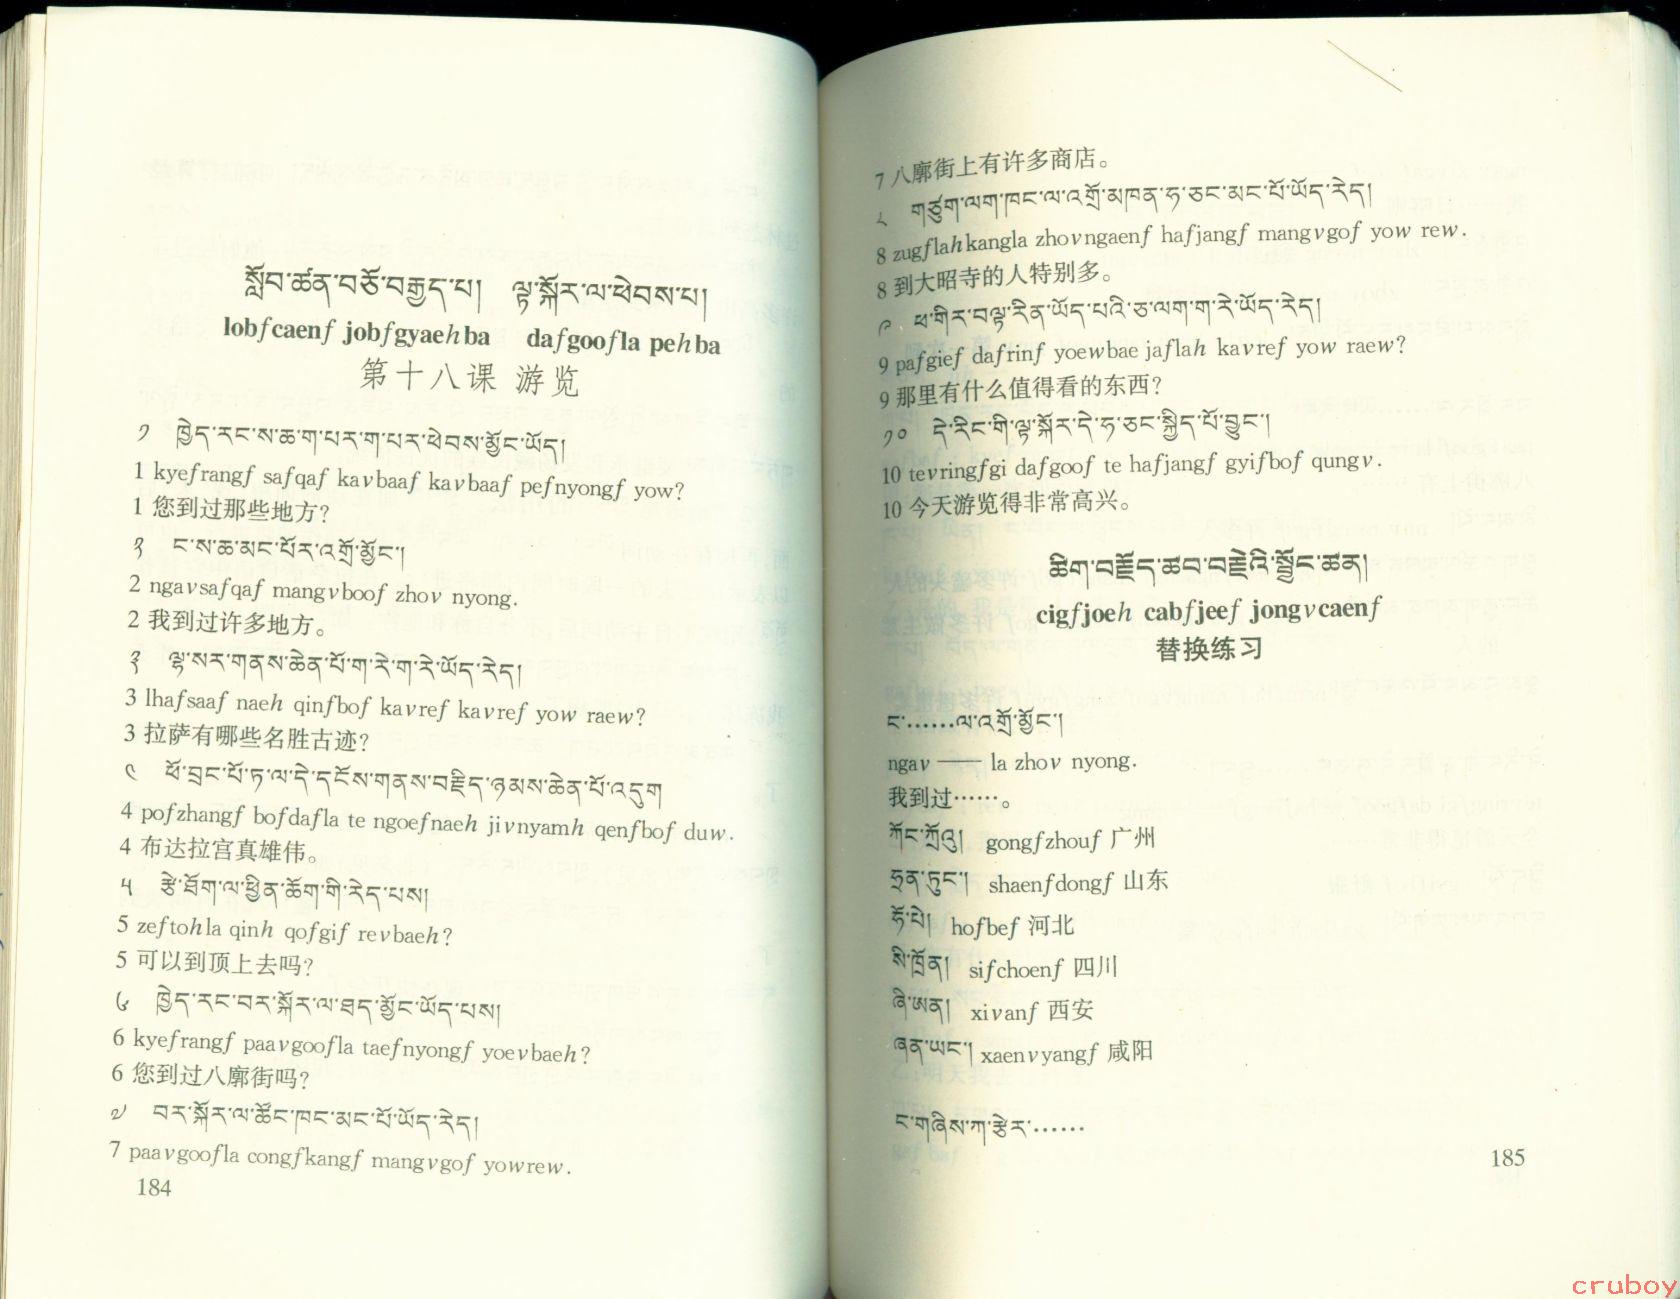 སློབ་ཚན་བཅོ་བརྒྱད་པ། ལྟ་སྐོར་ལ་ཕེབས་པ།
lobfcaenf jobfgyaehba dafgoofla pehba
第十八课 游览
༡ ཁྱེད་རང་ས་ཆ་ག་པར་ག་པར་ཕེབས་མྱོང་ཡོད།
1 kyefrangf safqaf kavbaaf kavbaaf pefnyongf yow?
1 您到过那些地方?
༢ ང་ས་ཆ་མང་པོར་འགྲོ་མྱོང་།
2 ngavsafqaf mangvboof zhov nyong.
2 我到过许多地方。
༣ ལྷ་སར་གནས་ཆེན་པོ་ག་རེ་ག་རེ་ཡོད་རེད།
3 lhafsaaf naeh qinfbof kavref kavref yow raew?
3 拉萨有哪些名胜古迹?
༤ ཕོ་བྲང་པོ་ཏ་ལ་དེ་དངོས་གནས་བརྗིད་ཉམས་ཆེན་པོ་འདུག
4 pofzhangf bofdafla te ngoefnaeh jivnyamh qenfbof duw.
4 布达拉宫真雄伟。
༥ རྩེ་ཐོག་ལ་ཕྱིན་ཆོག་གི་རེད་པས།
5 zeftohla qinh qofgif revbaeh?
5 可以到顶上去吗?
༦ ཁྱེད་རང་བར་སྐོར་ལ་ཐད་མྱོང་ཡོད་པས།
6 kyefrangf paavgoofla taefnyongf yoevbaeh?
6 您到过八廓街吗?
༧ བར་སྐོར་ལ་ཚོང་ཁང་མང་པོ་ཡོད་རེད།
7 paavgoofla congfkangf mangvgof yowrew.
184
7 八廓街上有许多商店。
༨ གཙུག་ལག་ཁང་ལ་འགྲོ་མཁན་ཧ་ཅང་མང་པོ་ཡོད་རེད།
8 zugflahkangla zhovngaenf hafjangf mangvgof yow rew.
8 到大昭寺的人特别多。
༩ ཕ་གིར་བལྟ་རིན་ཡོད་པའི་ཅ་ལག་ག་རེ་ཡོད་རེད།
9 pafgief dafrinf yoewbae jaflah kavref yow raew?
9 那里有什么值得看的东西?
༡༠ དེ་རིང་གི་ལྟ་སྐོར་དེ་ཧ་ཅང་སྐྱིད་པོ་བྱུང་།
10 tevringfgi dafgoof te hafjangf gyifbof qungv.
10 今天游览得非常高兴。
ཚིག་བརྗོད་ཚབ་བརྗེའི་སྦྱོང་ཚན།
cigfjoeh cabfjeef jongvcaenf
替换练习
ང་……ལ་འགྲོ་མྱོང་།
ngav —— la zhov nyong.
我到过……。
ཀོང་ཀྲོའུ། gongfzhouf 广州
ཧྲན་ཏུང་། shaenfdongf 山东
ཧོ་པེ། hofbef 河北
སི་ཁྲོན། sifchoenf 四川
ཞི་ཨན། xivanf 西安
ཞན་ཡང་། xaenvyangf 咸阳
ང་གཞིས་ཀ་རྩེར་……
185
cruboy